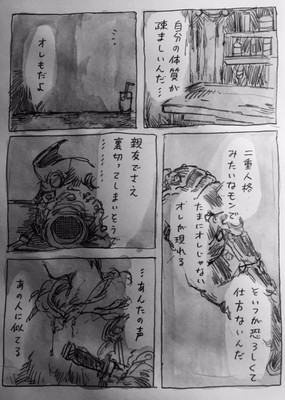 自分の体質が
疎ましいんだ…
…
オレもだよ
二重人格
みたいなモンで
たまにオレじゃない
オレが現れる
そいつが恐ろしくて
仕方ないんだ
親友でさえ
裏切ってしまいそうで
………
…あんたの声
あの人に似てる